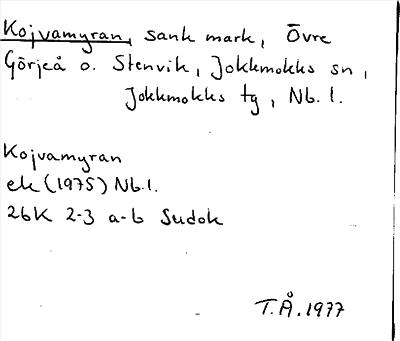 Kojvamyran, sank mark, Övre
Görjeå o. Stenvik, Jokkmokks sn,
Jokkmokks tg, Nb. l.
Kojvamyran
ek (1975) Nb. l.
26K 2-3 a-b Sudok
T. Å. 1977